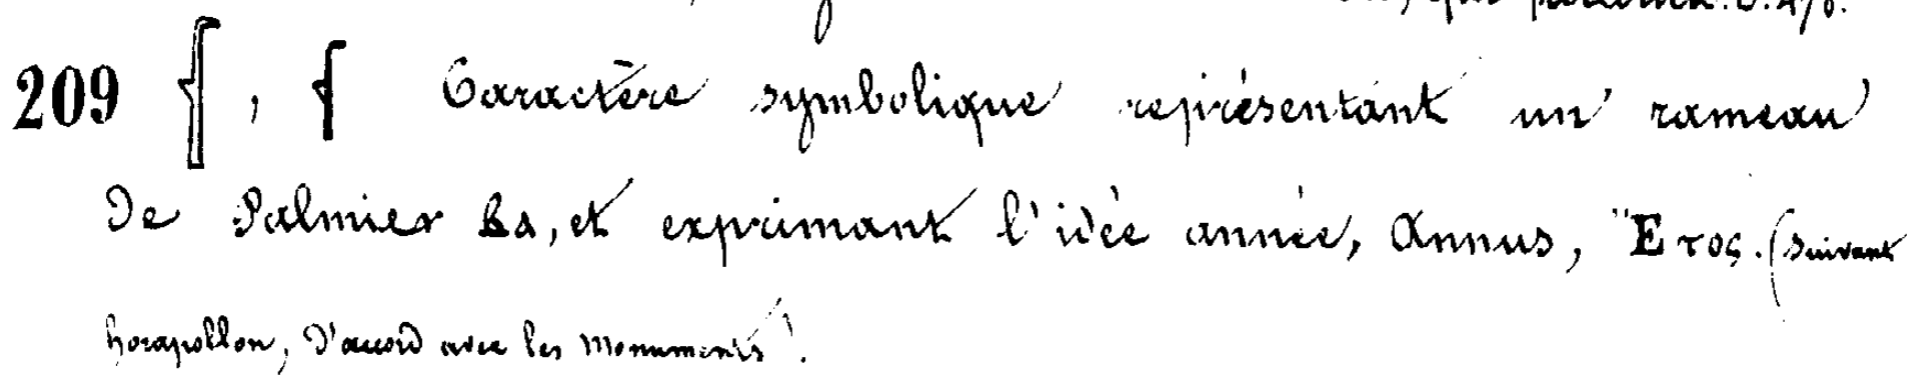 209 , Caractère symbolique représentant un rameau
de Palmier Ⲃⲁ, et exprimant l'idée année, Annus, Ἔτος. (suivant
horapollon, d'accord avec les Monuments).